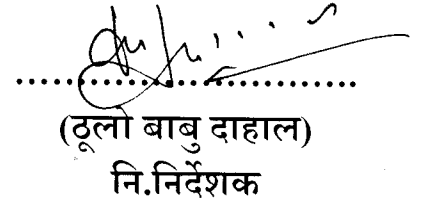 (ठूलो बाबु दाहाल)
नि.निर्देशक